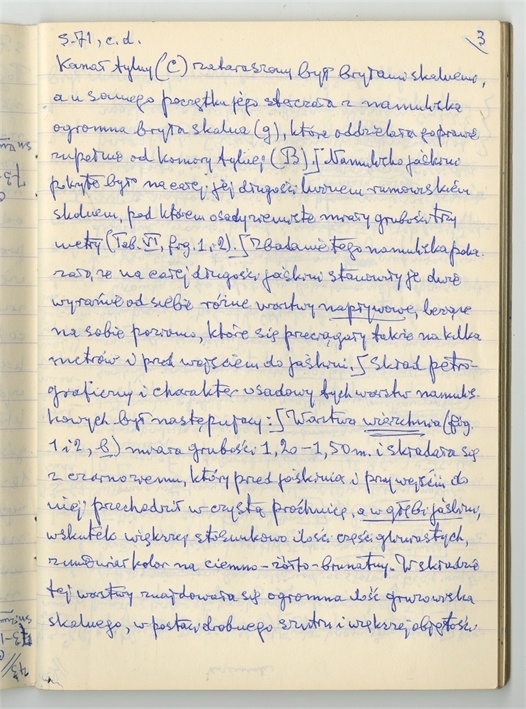 3
s. 71, c.d.
Kanał tylny (C) zataraszony był bryłami skalnemi,
a u samego początku jego sterczała z namuliska
ogromna bryła skalna (g), która oddzielała go prawie
zupełnie od komory tylnej (B).] Namulisko jaskini
pokryte było na całej jej długości luźnem rumowiskiem
skalnem, pod którem osady ziemiste miały grubości trzy
metry (Tab. VI, fig. 1 i 2).[ Zbadanie tego namuliska poka-
zało, że na całej długości jaskini stanowiły je dwie
wyraźnie od siebie różne warstwy napływowe, leżące
na sobie poziomo, które się przeciągały także na kilka
metrów i przed wejściem do jaskini.[ Skład petro-
graficzny i charakter osadowy tych warstw namulis-
kowych był następujący:[ Warstwa wierzchnia (fig.
1 i 2, b) miała grubości 1,20–1,50 m. i składała się
z czarnoziemu, który przed jaskinią i przy wejściu do
niej przechodził w czystą próchnicę, a w głębi jaskini,
wskutek większej stosunkowo ilości części gliniastych,
zmieniał kolor na ciemno-żółto-brunatny. W składzie
tej warstwy znajdowała się ogromna ilość gruzowiska
skalnego, w postaci drobnego szutru i większej objętości